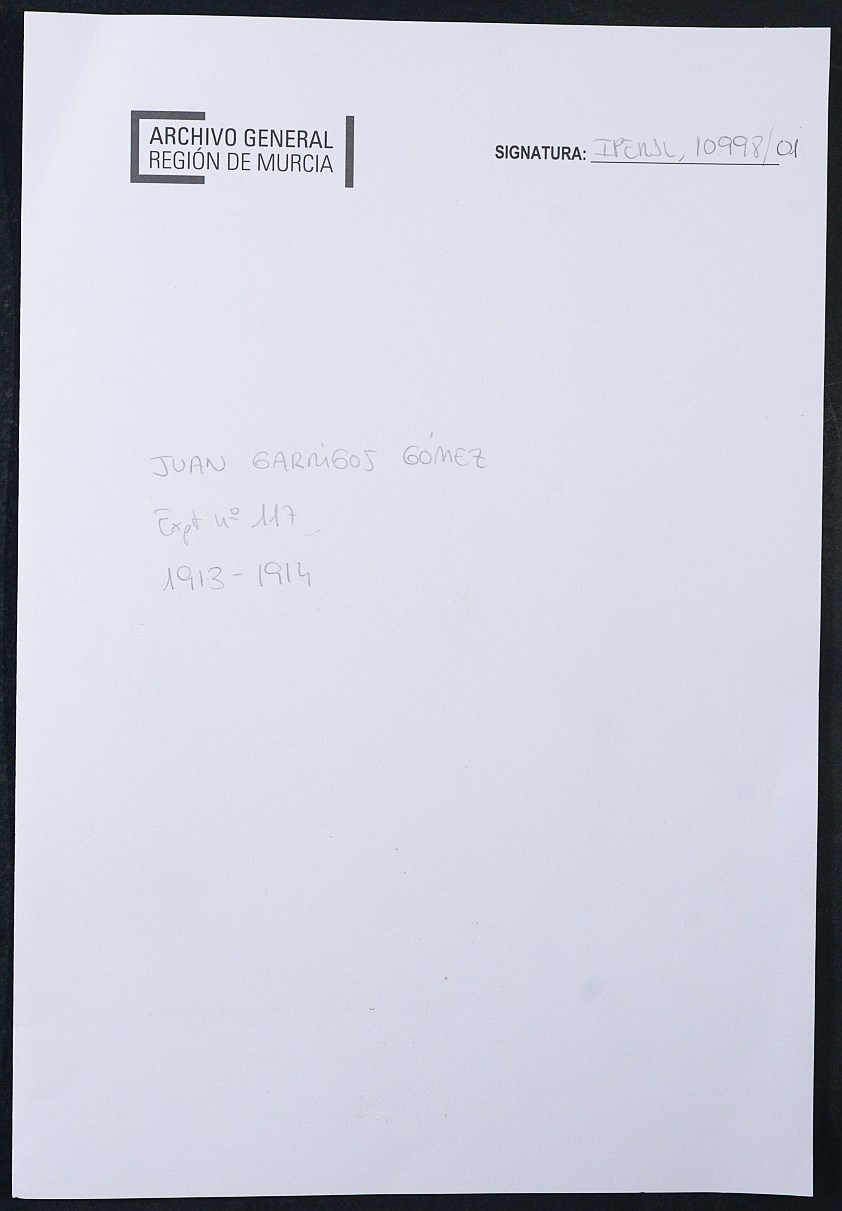 ARCHIVO GENERAL
REGIÓN DE MURCIA
SIGNATURA: 10998/01
JUAN GARRIGOS GÓMEZ
Expt nº 117
1913 - 1914